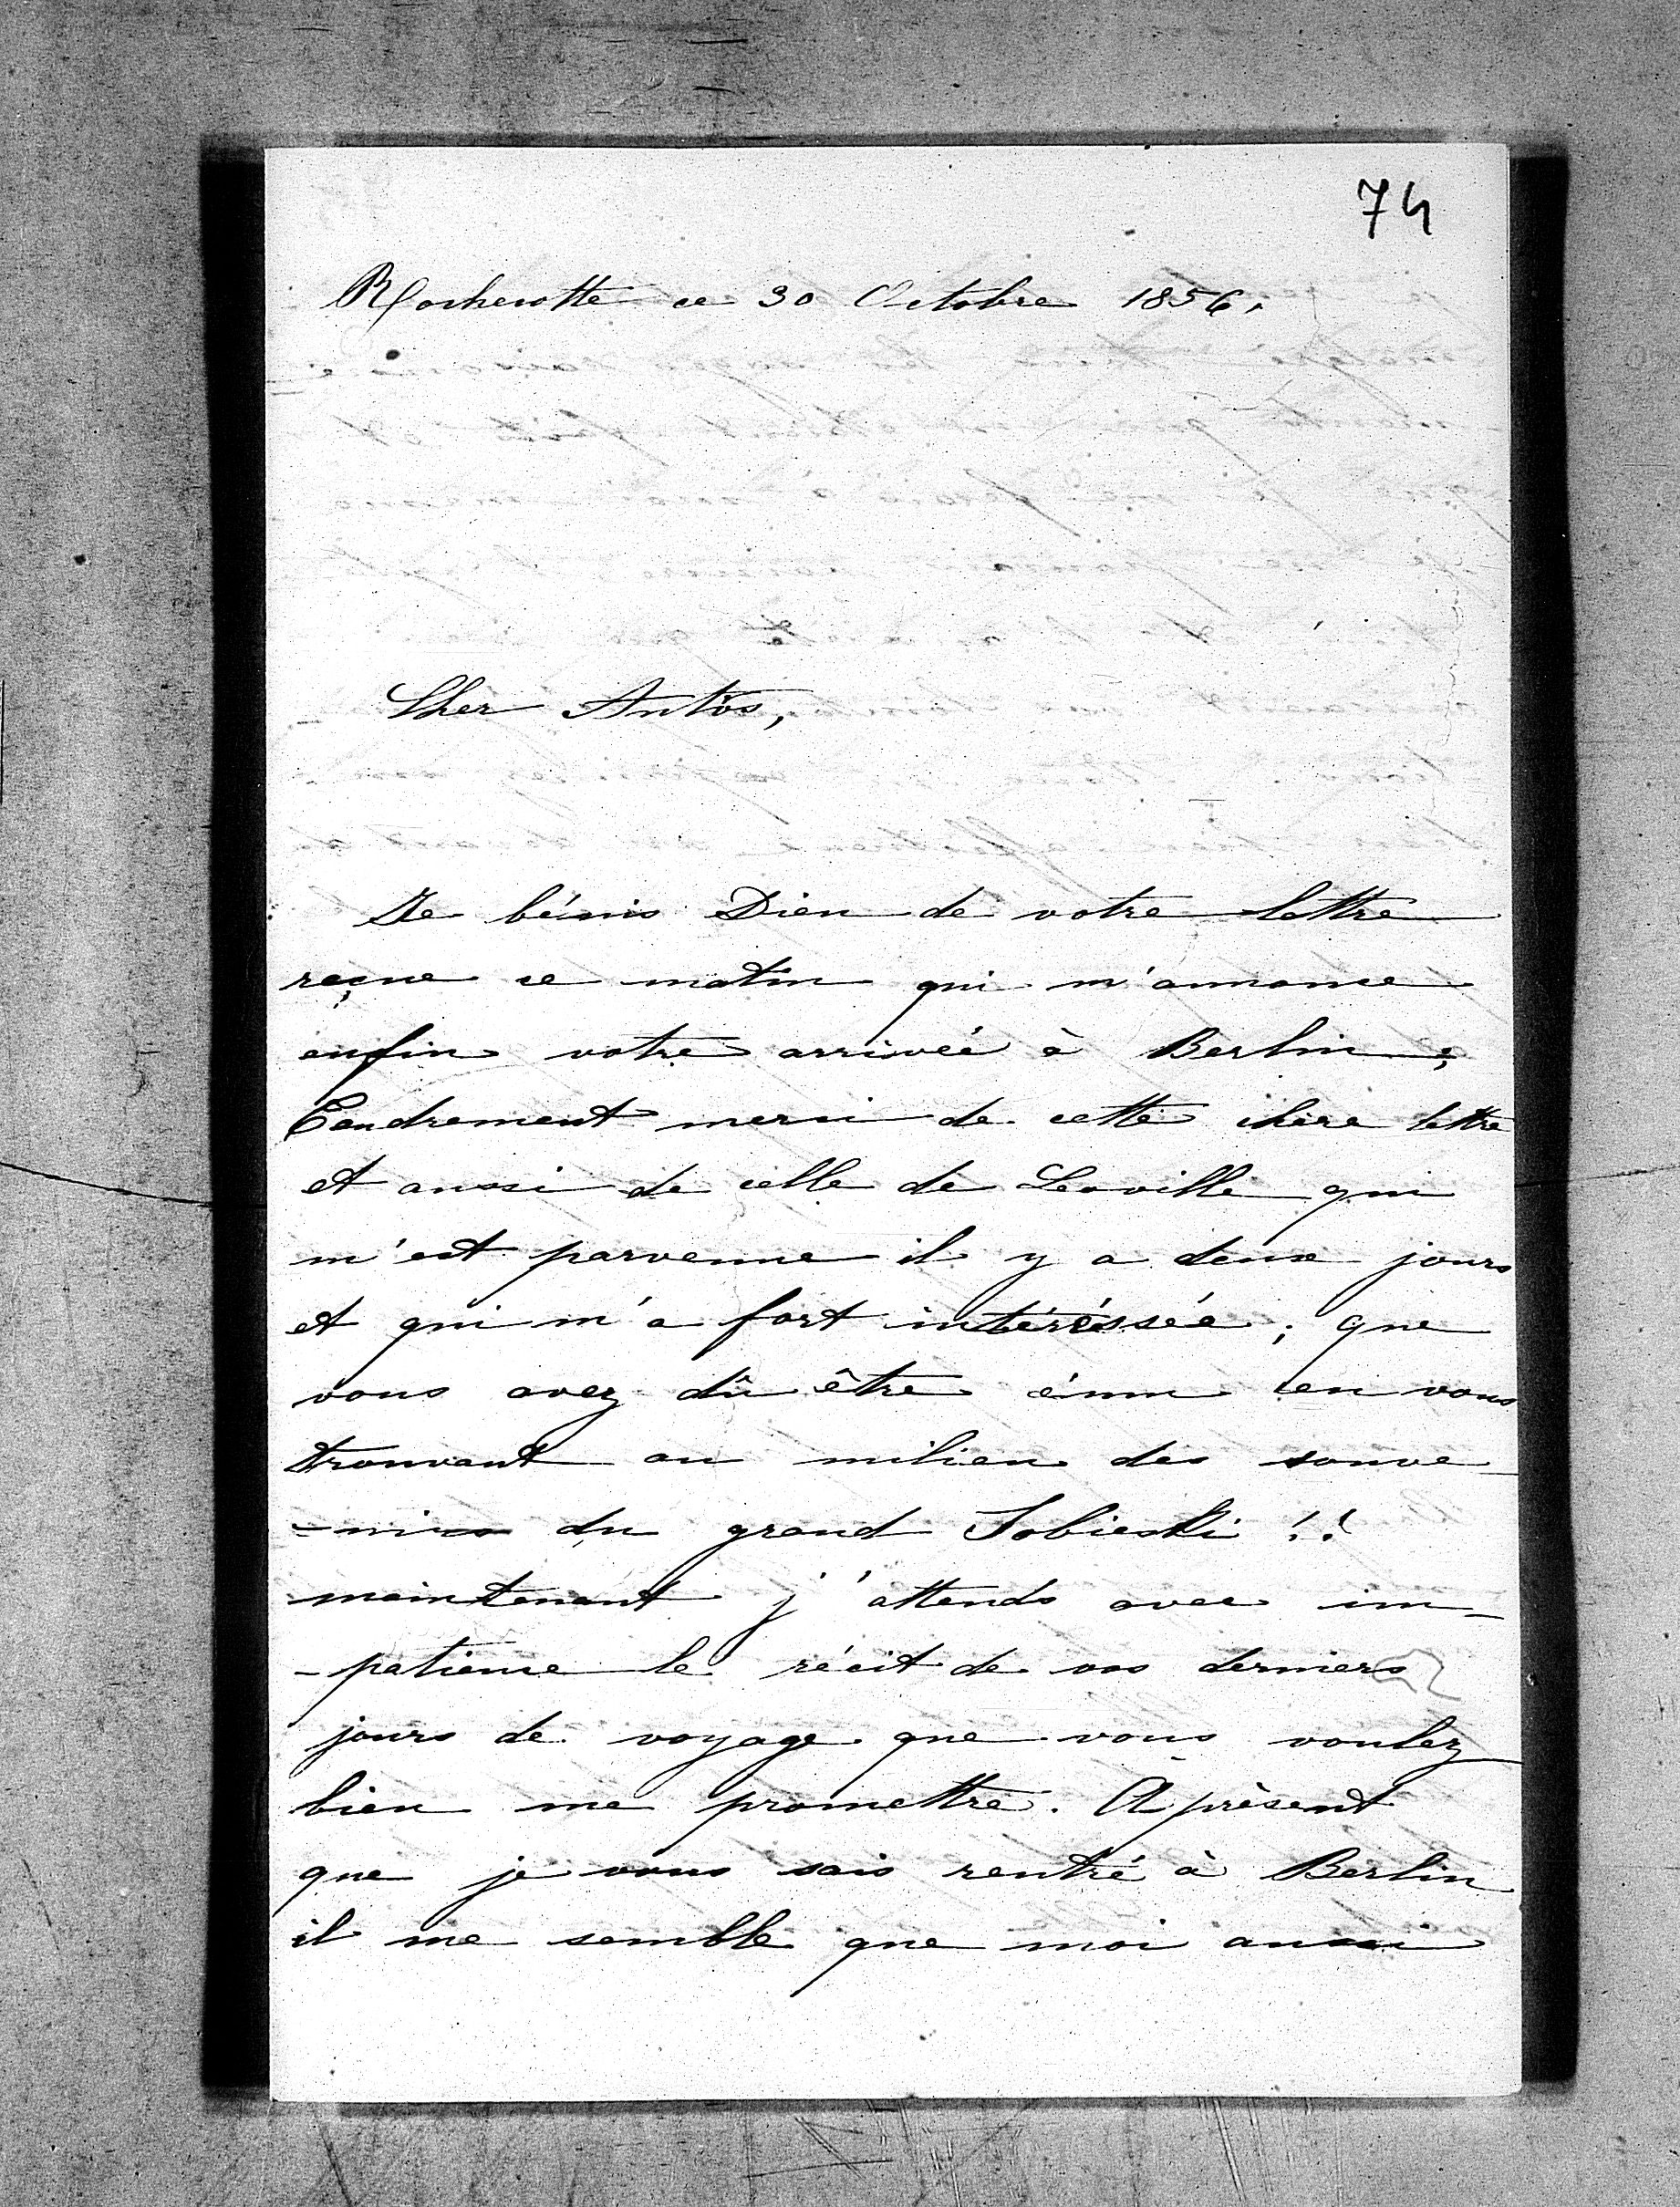 74
Rochecotte ce 30 Octobre 1856,
Cher Antôs,
Je bénis Dieu de votre lettre
reçue ce matin qui m'annonce
enfin votre arrivée à Berlin ;
Tendrement merci de cette chère lettre
et aussi de celle de Leoville qui
m'est parvenue il y a deux jours
et qui m'a fort intéréssée ; que
vous avez dû être ému en vous
trouvant au milieu des souve-
-nirs du grand Sobieski !!
maintenant j'attends avec im-
-patience le récit de vos derniers
jours de voyage que vous voulez
bien me promettre. A présent
que je vous sais rentré à Berlin
il me semble que moi aussi